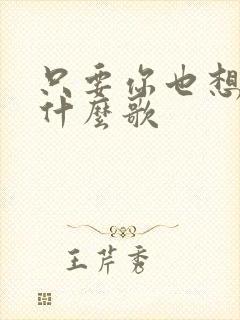 只要你也想
什麼歌
王芹秀